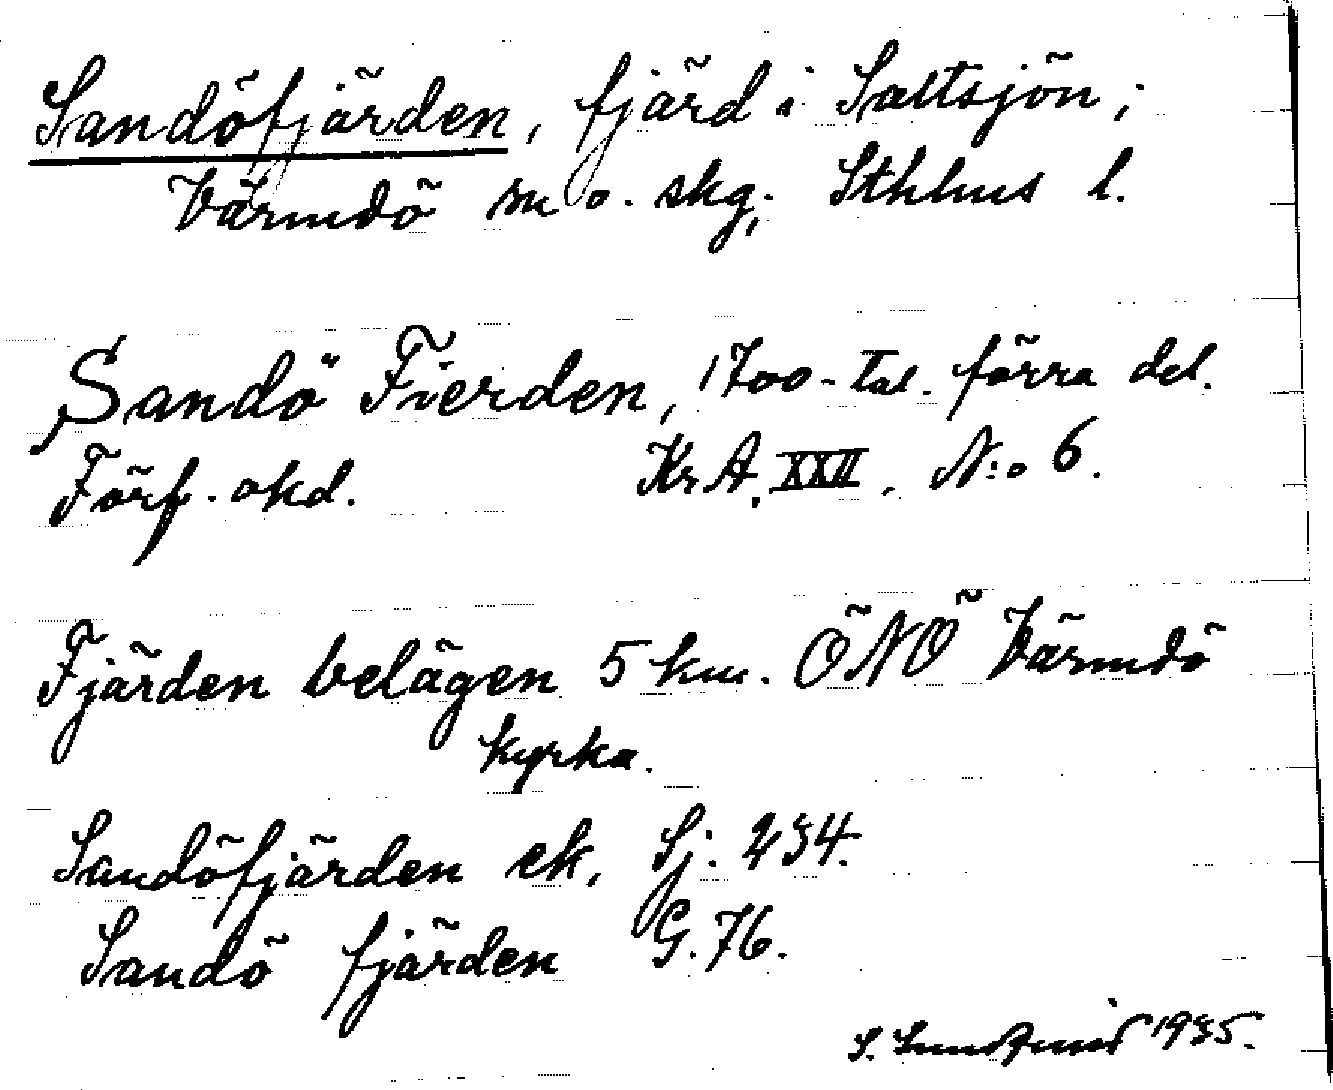 Sandöfjärden, fjärd i Saltsjön;
Värmdö m o. skg; Sthlms l.
Sandö Fierden, 1700-tal. förra del.
Förf. okd. Kr.A. XXII. N:o 6.
Fjärden belägen 5 km. ÖNÖ Värmdö
kyrka.
Sandöfjärden ek, Sj. 234.
Sandö fjärden G. 76.
S. 1935.